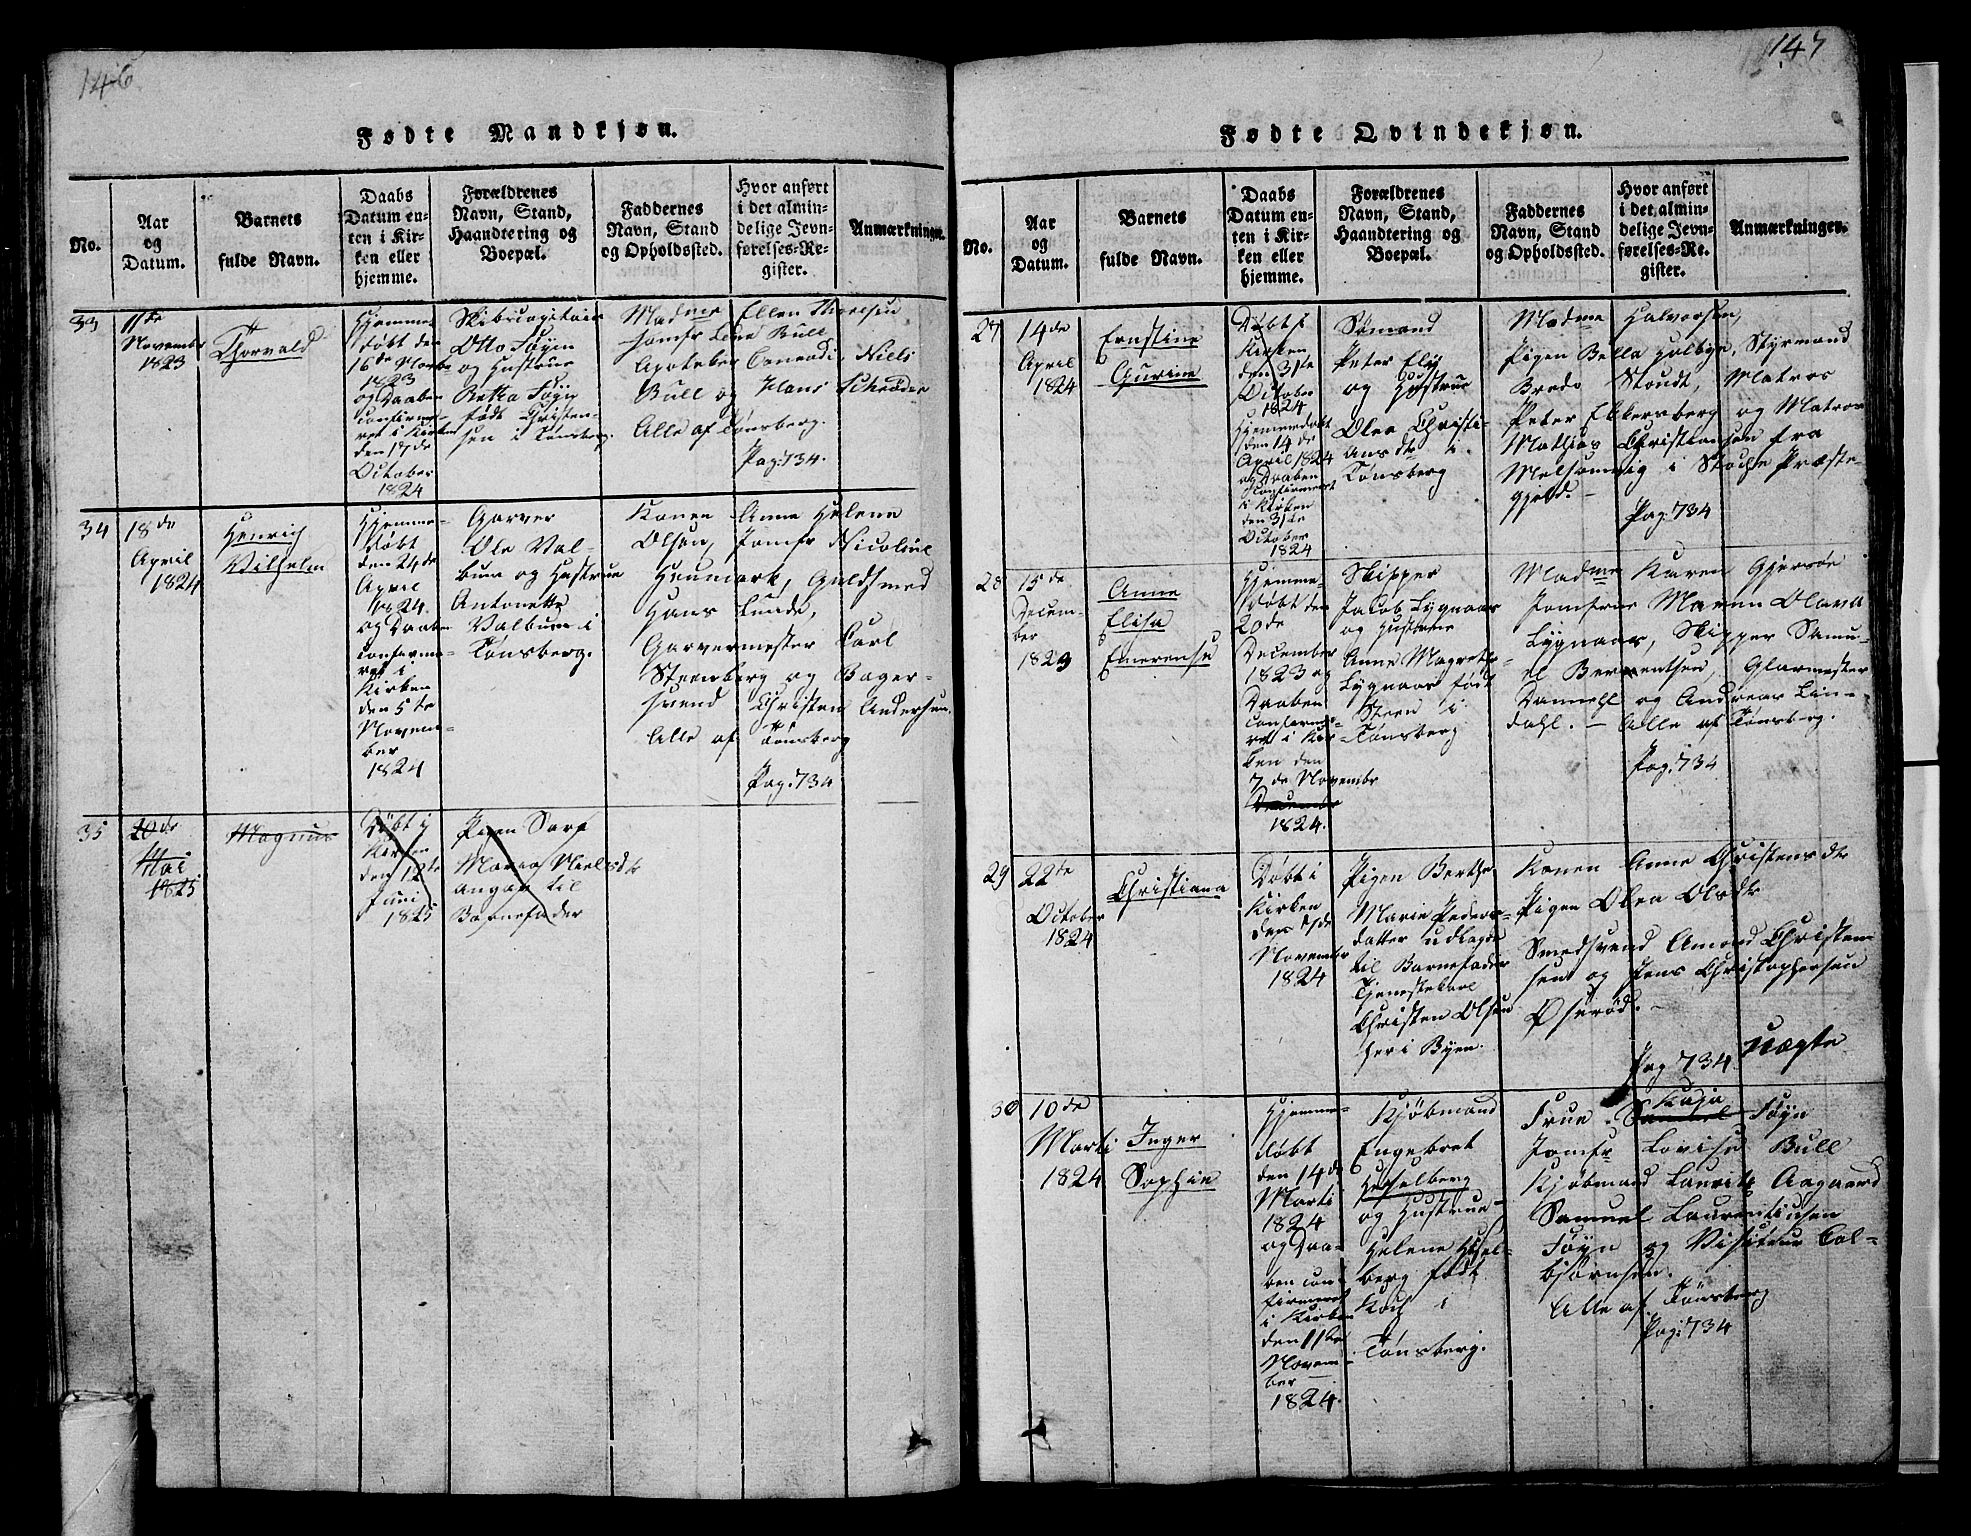 146
Fødte Mandkjøn.
No.
Aar
og
Datum.
Barnets
fulde Navn.
Daabs
Datum en-
ten i Kir-
ken eller
hjemme.
Forældrenes
Navn, Stand,
Haandtering og
Boepæl.
Faddernes
Navn, Stand
og Opholdssted.
Hvor anført
i det almin-
delige Jevn-
førelses-Re-
gister.
Anmærkninger.
33
11de
November
1823
Thorvald
Hjemme
døbt den
16de Novbr
1823
og Daaben
confirme-
ret i Kirken
den 17de
October
1824
Skibscapitain
Otto Føyen
og Hustrue
Føyn
født Christen-
sen i Tønsberg.
Madme Ellen Thoresen
Jomfr Lene Bull
Apotheker Conradi, Niels
Bull og Hans Schrøder
Alle af Tønsberg.
Pag: 734.
34
18de
April
1824
Henrich
Vilhelm
Hjemme-
døbt
den 24de
April
1824.
og Daaben
confirme-
ret i
Kirken
den 5te
Novem-
ber
1824
Garver
Ole Val-
bum og Hustrue
Antonette
Valbum i
Tønsberg.
Konen Anne Helene
Olsen, Jomfr Nicoline
Heumark, Guldsmed
Hans Lunde,
Garvermester Carl
Steenberg og Bager-
svend Christen Andersen.
Alle af Tønsberg
Pag: 734
35
20de
Mai
1825
Magnus
Døbt i
Kirken
den 12te
Juni
1825
Pigen Sara
Maria Nielsdtr
angav til
Barnefader
147
Fødte Qvindekjøn.
No.
Aar
og
Datum.
Barnets
fulde Navn.
Daabs
Datum en-
ten i Kir-
ken eller
hjemme.
Forældrenes
Navn, Stand,
Haandtering og
Boepæl.
Faddernes
Navn, Stand
og Opholdssted.
Hvor anført
i det almin-
delige Jevn-
førelses-Re-
gister.
Anmærkninger.
27
14de
April
1824
Ernstine
Gurine
Døbt i
Kirken
den 31te
October
1824
Hjemmedøbt
den 14de
April 1824
og Daaben
confirmeret
i Kirken
den 31te
October
1824
Sømand
Peter Ely
og Hustrue
Olea Christi-
ansdtr i
Tønsberg
Madme Halvorsen,
Pigen Bella Holbye, Styrmand
Bredo Stoudt, Matros
Peter Ekkersberg og Matros
Mathias Christiansen fra
Melsomvig i Stokke Præste-
gjeld.
Pag: 734
28
15de
Decem-
ber
1823
Anne
Elisa
Emerense
Hjemme-
døbt den
20de
December
1823 og
Daaben
confirme-
ret i Kir-
ken den
7de Novembr
Decembr
1824.
Skipper
Jacob Lygnaas
og Hustrue
Anne Magrethe
Lygnaas født
Steen i
Tønsberg
Madme Karen Gjersøe
Jomfrue Maren Olava
Lygnaas, Skipper Samu-
el Berrentsen, Glarmester
Daniell og Andreas Lin-
dahl. - Alle af Tønsberg.
Pag: 734
29
22de
October
1824
Christiana
Døbt i
Kirken
den 7de
November
1824
Pigen Berthe
Marie Peders-
datter udlagde
til Barnefader
Tjenestekarl
Christen Olsen
her i Byen.
Konen Anne Christensdtr
Pigen Olea Olsdtr
Smedsvend Amond Christen-
sen og Jens Christophersen
Øserød.
Pag 734
Uægte
30
10de
Marti
1824
Inger
Sophie
Hjemme-
døbt
den 14de
Marti
1824
og Daa-
ben con-
firmeret
i Kirken
den 11te
Novem-
ber
1824.
Kjøbmand
Engebret
Hesselberg
og Hustrue
Helene Hesel-
berg født
Koch i
Tønsberg.
Kaja
Frue Samuel Føyn
Jomfr Lovise Bull
Kjøbmand Lauritz Aagaard
Samuel Laurentiusen
Føyn og Visiteur Col-
bjørnsen.
Alle af Tønsberg
Pag: 734